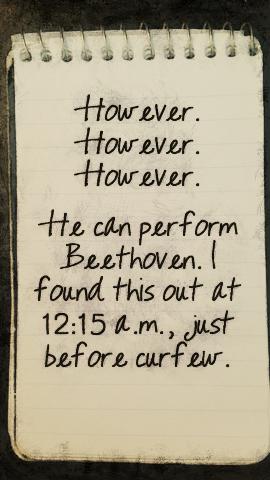 However.
However.
However.
He can perform
Beethoven. I
found this out at
12:15 a.m., just
before curfew.